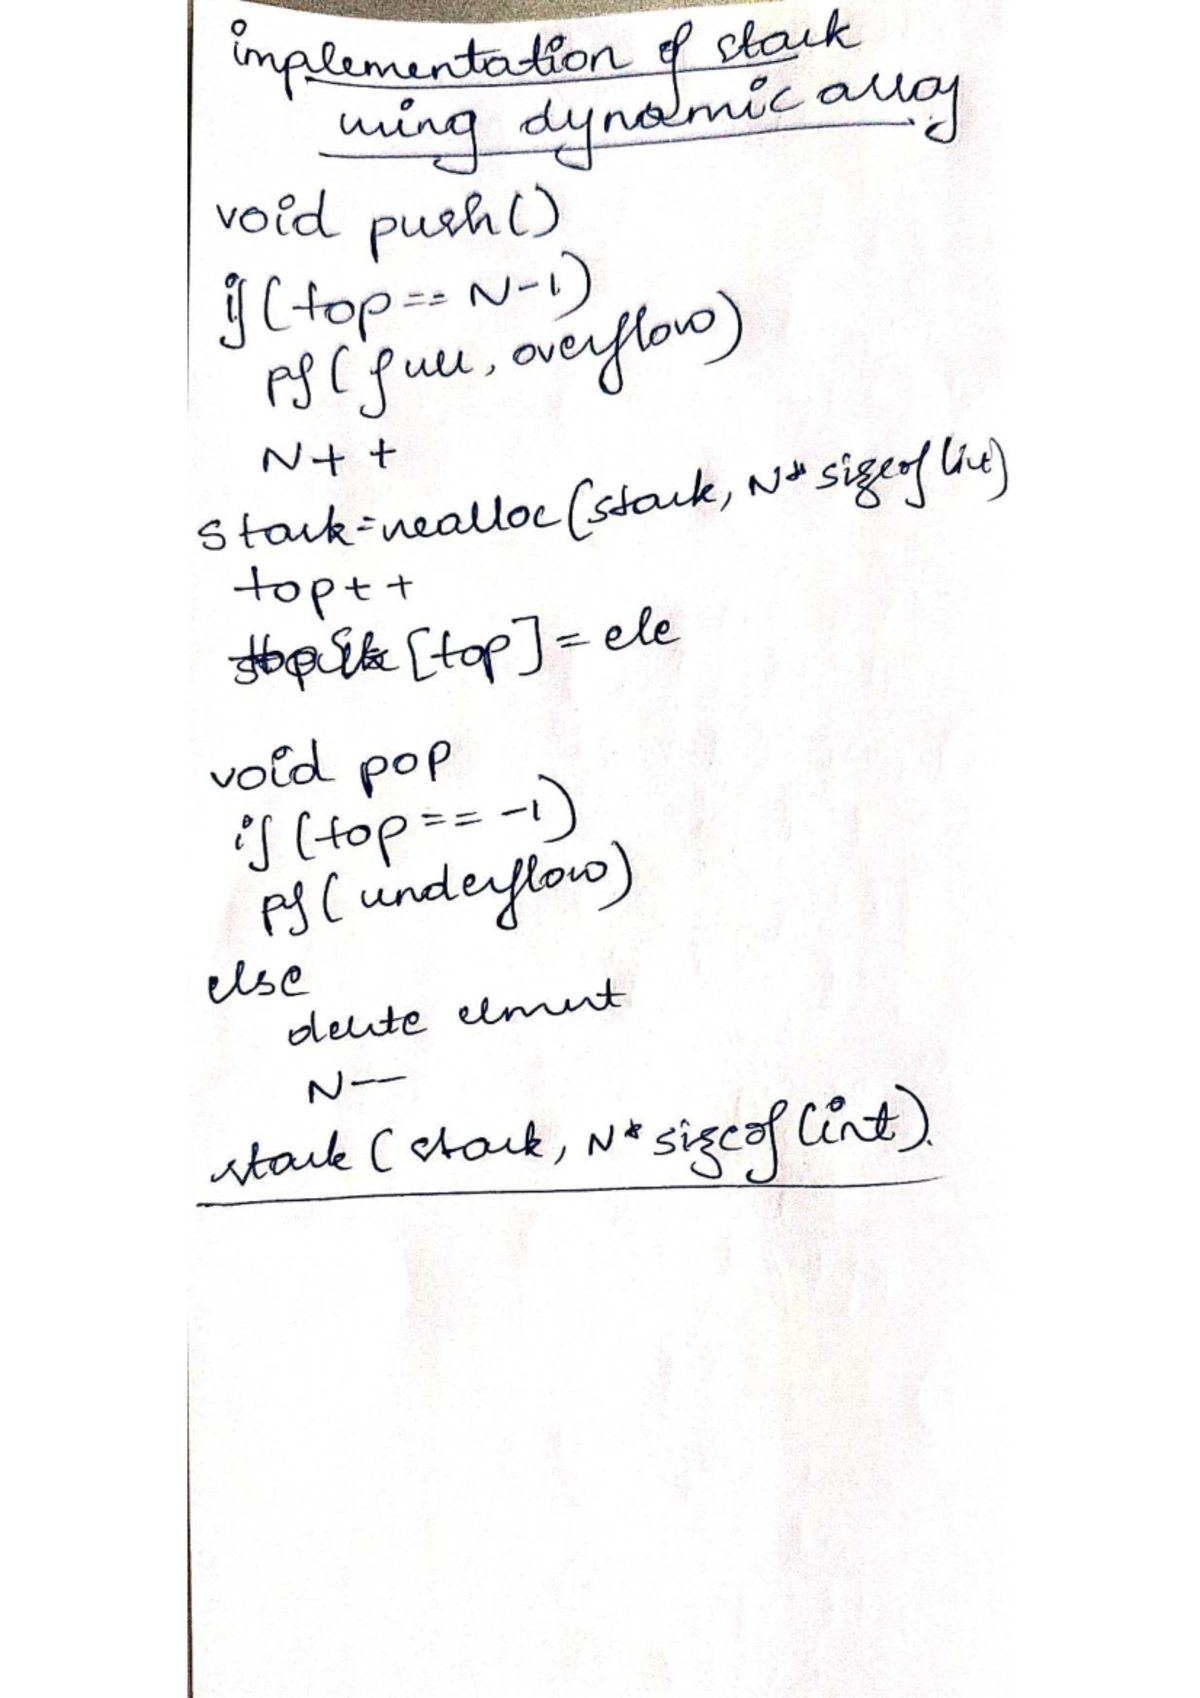 implementation of stack
using dynamic array
void push()
if (top == N-1)
pf( full, overflow)
N++
stack=realloc(stack, N* sizeof(int)
top++
[top] = ele
void pop
if (top == -1)
pf( underflow)
else
delete elment
N--
stack ( stack, N* sizeof (int).